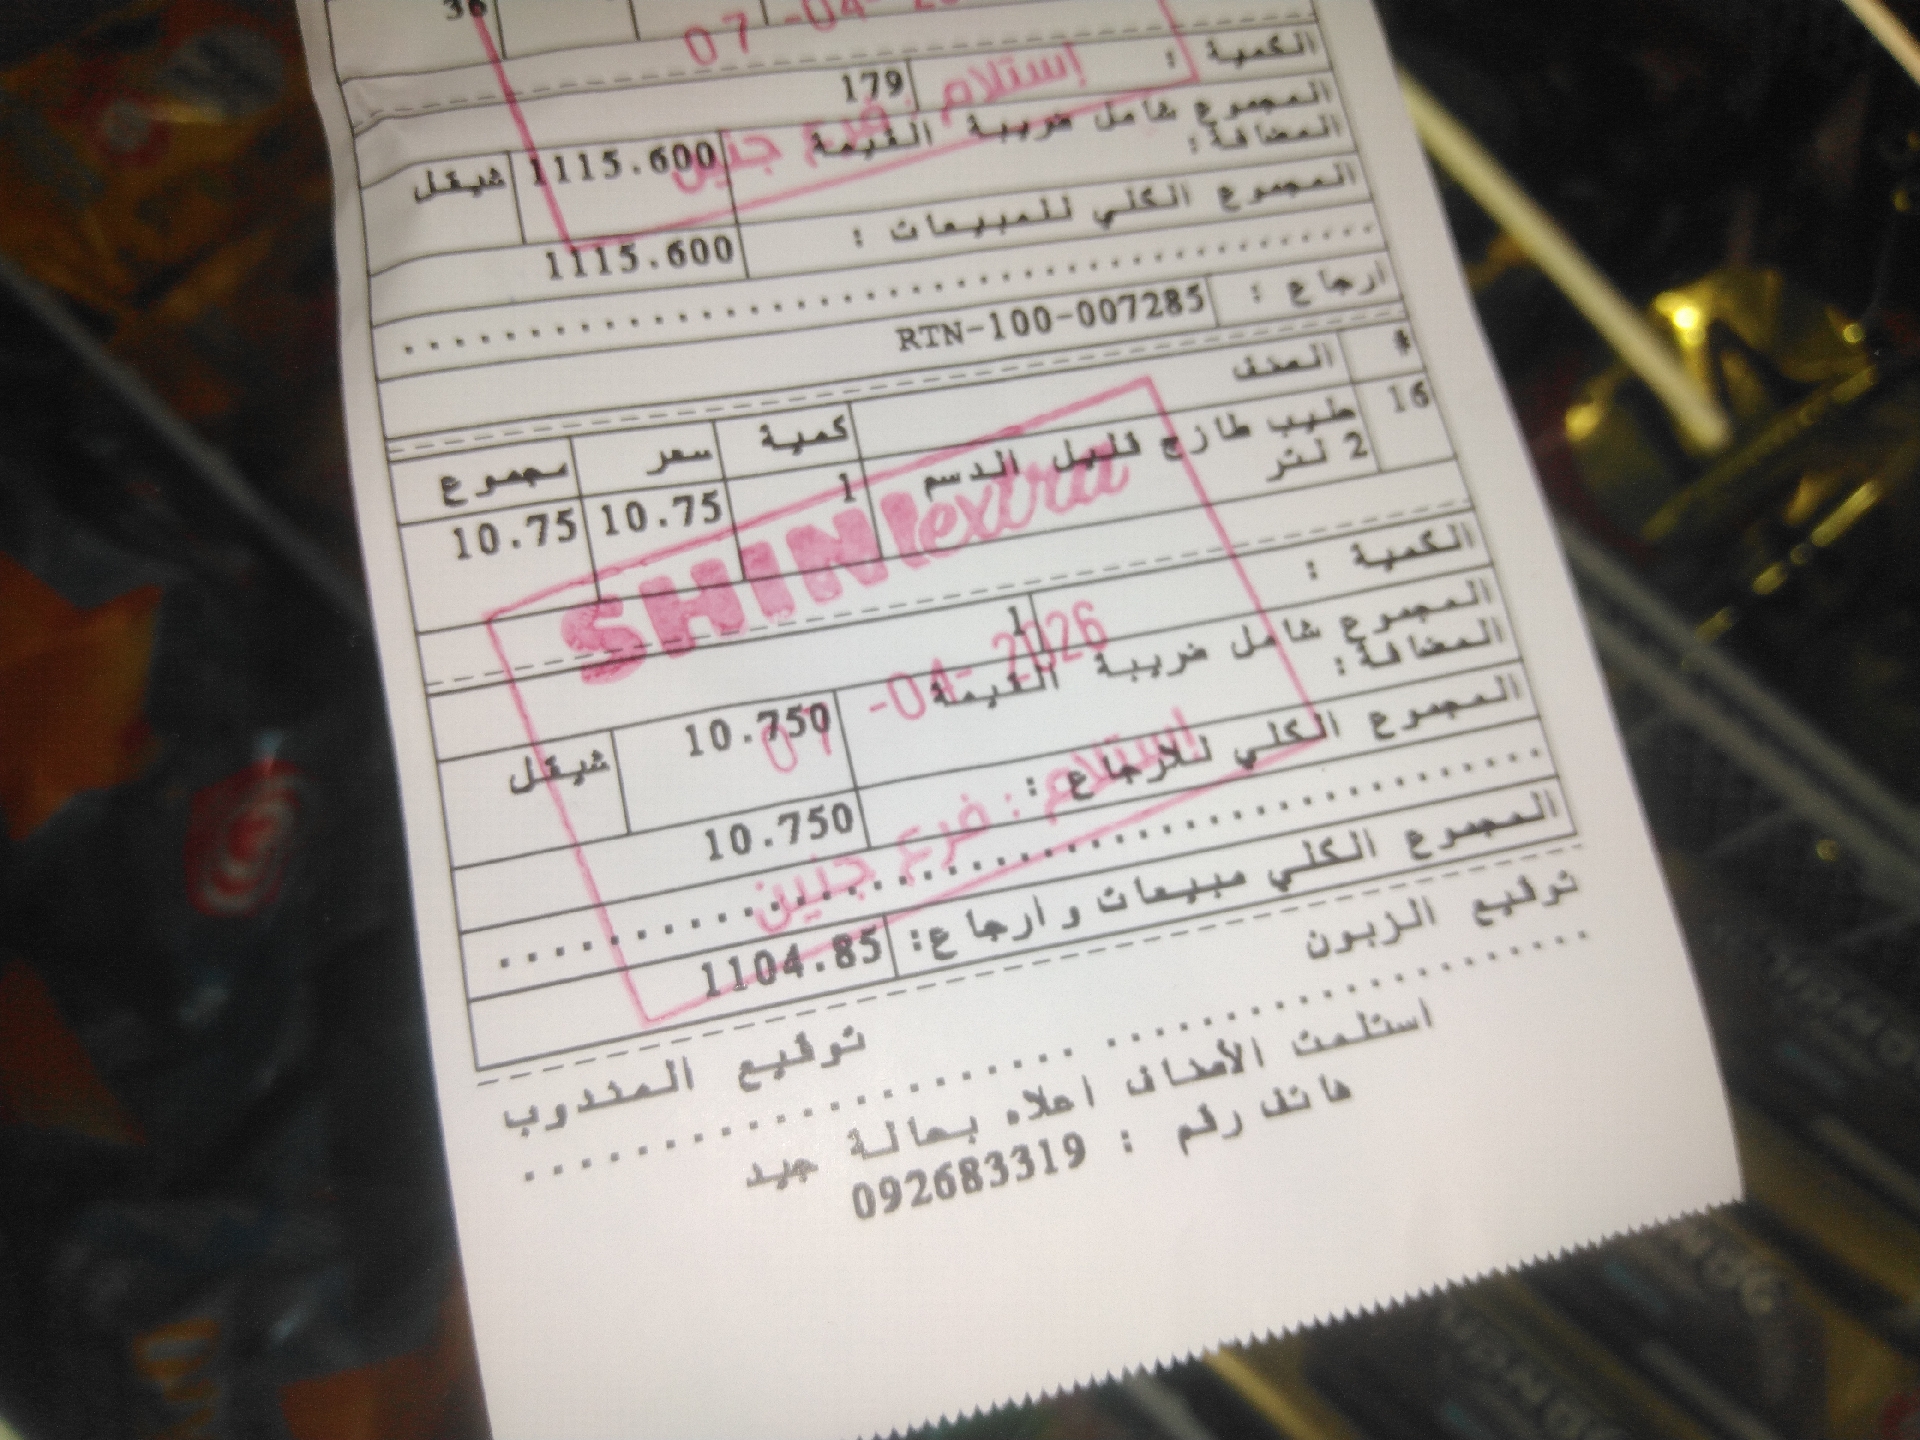 36
07 -04-
الكمية : 179
استلام : فرع جنين
المجموع شامل ضريبة القيمة المضافة: 1115.600 شيقل
المجموع الكلي للمبيعات : 1115.600
ارجاع : RTN-100-007285
# الصنف كمية سعر مجموع
16 حليب طازج قليل الدسم 1 10.75 10.75
2 لتر
SHINI extra
الكمية : 1
07 -04- 2026
المجموع شامل ضريبة القيمة المضافة: 10.750 شيقل
المجموع الكلي للارجاع : 10.750
استلام : فرع جنين
المجموع الكلي مبيعات وارجاع: 1104.85
توقيع الزبون توقيع المندوب
استلمت الأصناف اعلاه بحالة جيد
هاتف رقم : 092683319